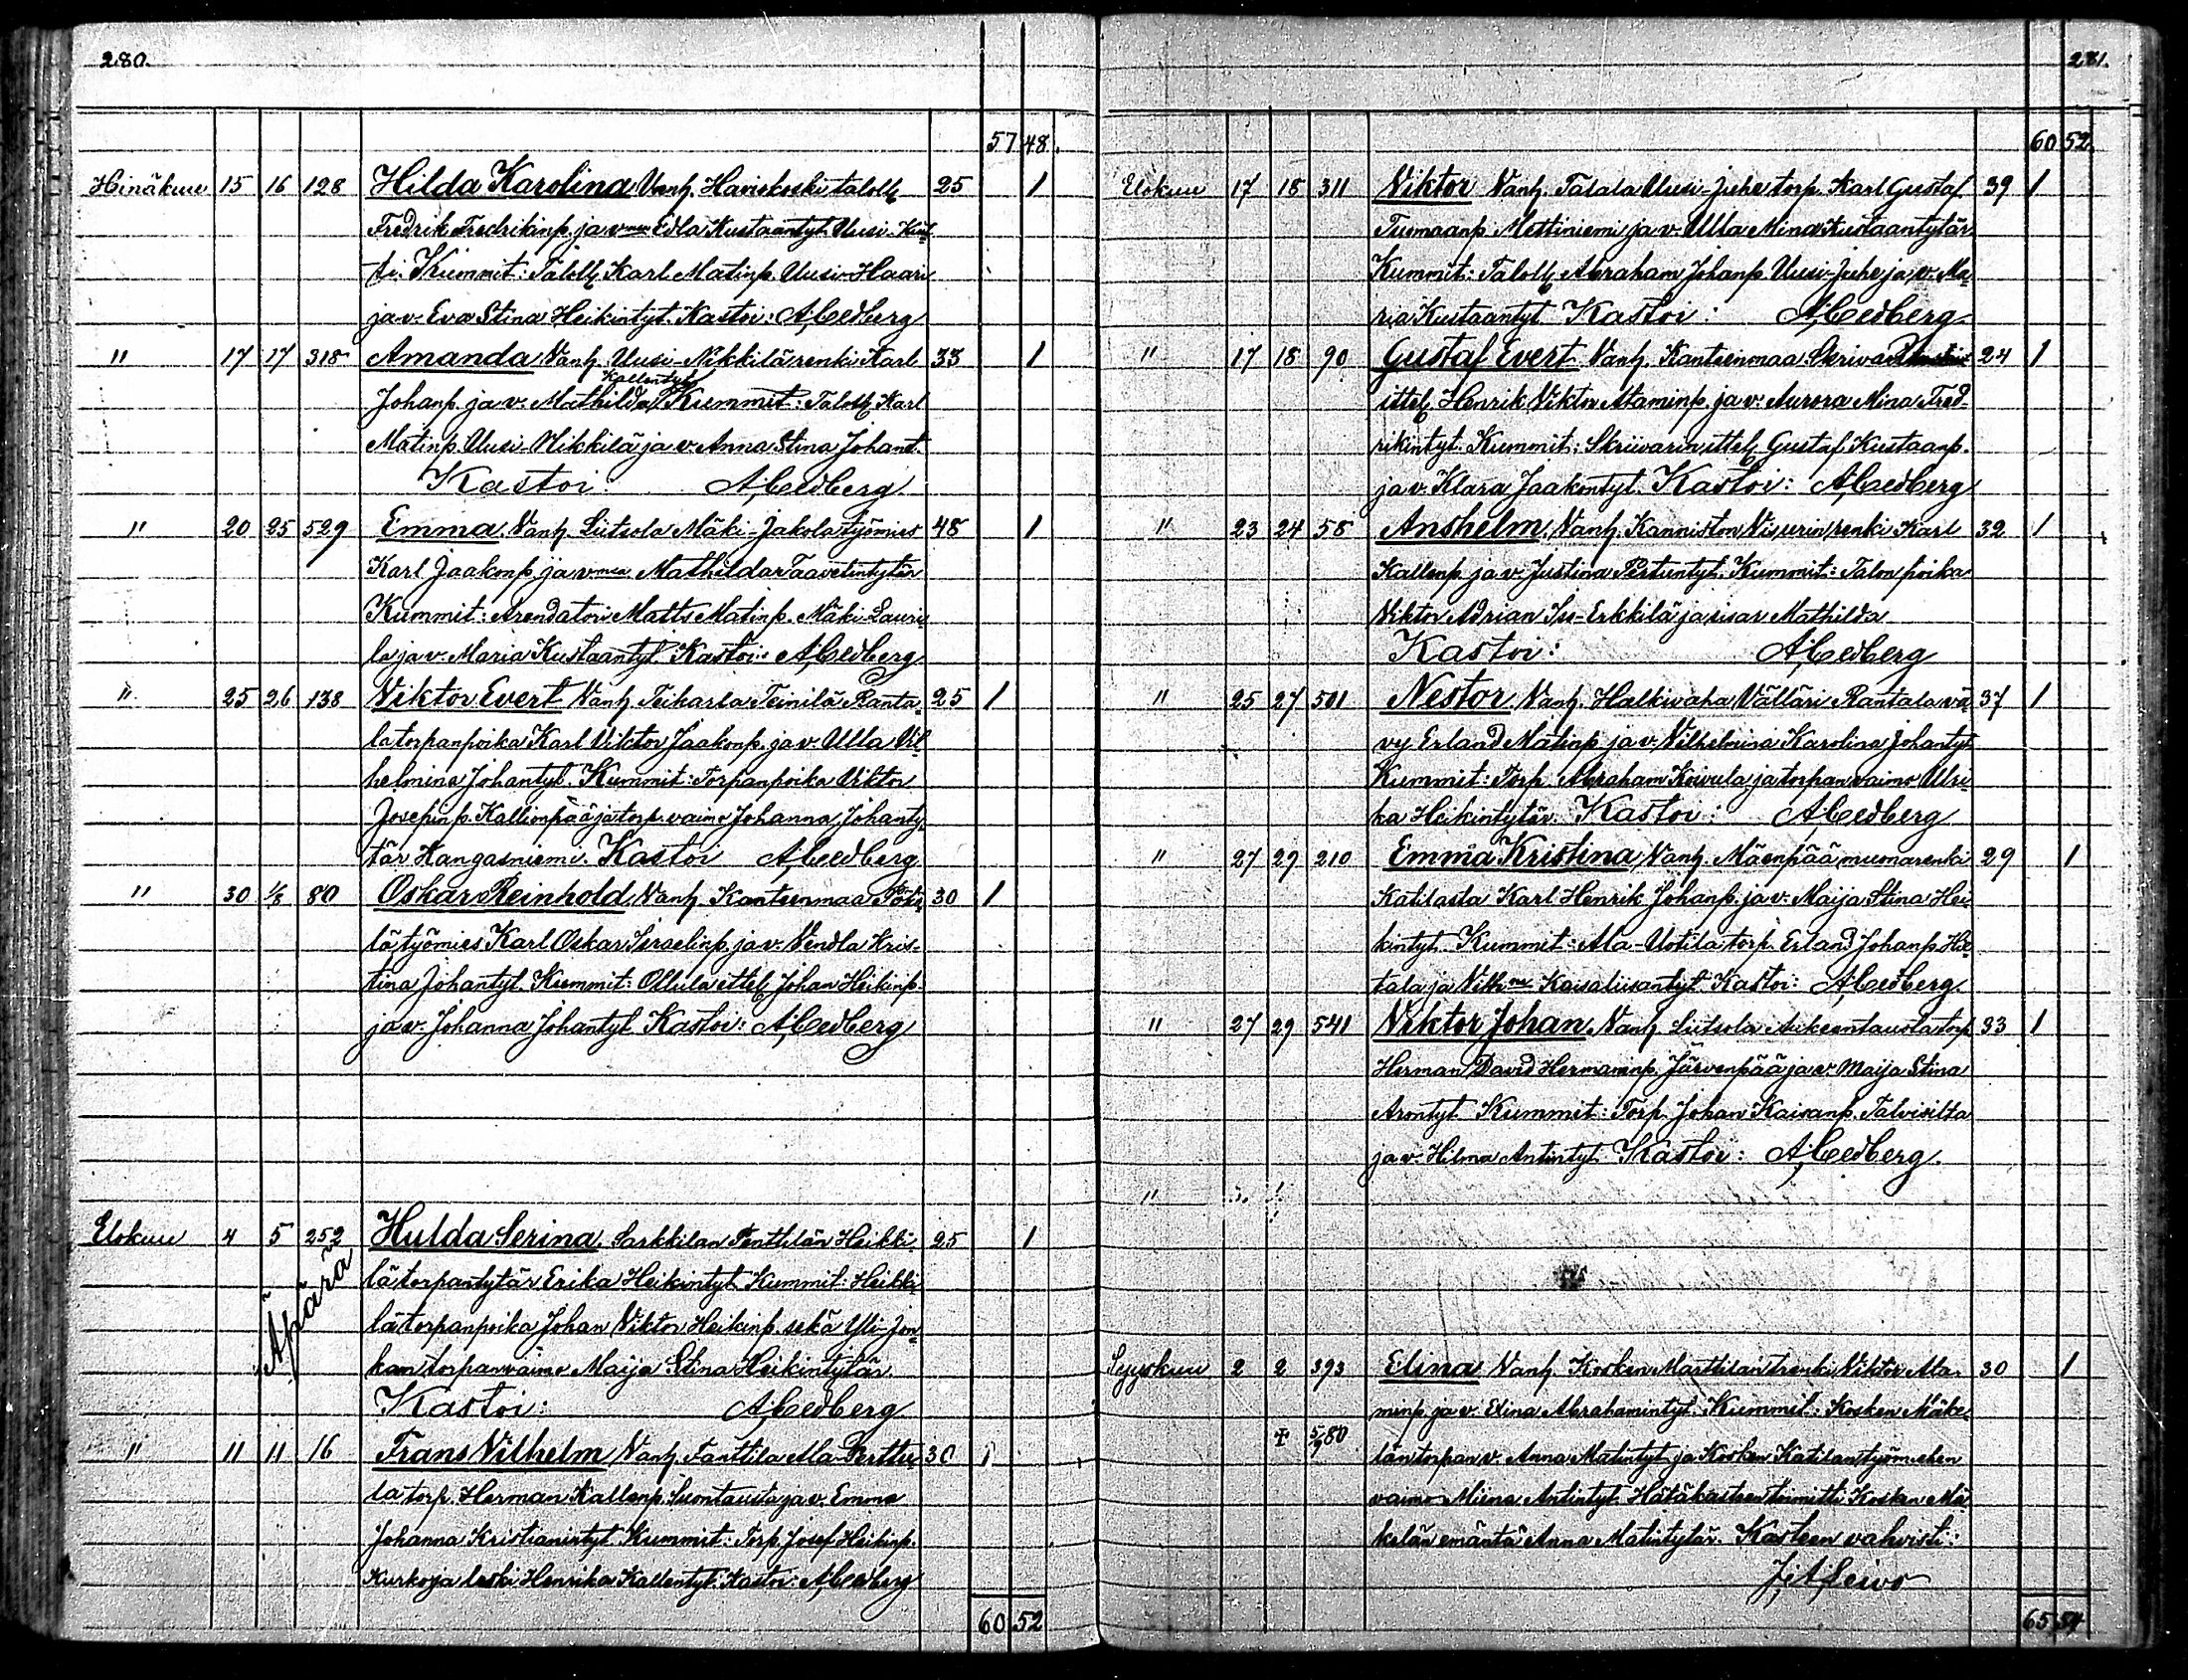 280.
57 48.
Hinäkuu 15 16 128 Hilda Karolina Vanh. Haviokoski talolh 25 1
Fredrik Fredrikinp. ja vmo Edla Kustaantyt. Uusi-Kut-
ti. Kummit: Talolh. Karl Matinp. Uusi-Haari
ja v. Eva Stina Heikintyt. Kastoi: A. Cedberg
" 17 17 318 Amanda Vanh. Uusi-Nikkilä renki Karl 33 1
Kallentyt
Johanp. ja v. Mathilda Kummit: Talolh. Karl
Matinp. Uusi-Nikkilä ja v. Anna Stina Johant.
Kastoi: A. Cedberg
" 20 25 529 Emma. Vanh. Liitsola Mäki-Jakola työmies 48 1
Karl Jaakonp. ja vmo Mathilda Taavetintytär
Kummit: Arendatori Matts Matinp. Mäki-Lauri-
la ja v. Maria Kustaantyt. Kastoi: A. Cedberg
" 25 26 138 Viktor Evert Vanh. Teikarla Teinilä Ranta- 25 1
la torpanpoika Karl Viktor Jaakonp. ja v. Ulla Vil-
helmina Johantyt. Kummit: Torpanpoika Viktor
Josepinp. Kallionpää ja torp. vaimo Johanna Johanty-
tär Hangasniemi. Kastoi A. Cedberg
" 30 1/8 80 Oskar Reinhold, Vanh. Kanteenmaa 30 1
lä työmies Karl Oskar Israelinp. ja v. Vendla Kris-
tina Johantyt. Kummit: Ollula ittell. Johan Heikinp.
ja v. Johanna Johantyt. Kastoi: A. Cedberg
Elokuu 4 5 252 Hulda Serina. Sarkkilan Penttilän Heikki- 25 1
Äpärä
lä torpantytär Erika Heikintyt. Kummit: Heikki-
lä torpanpoika Johan Viktor Heikinp. sekä Yli-Jon-
kan torpanvaimo Maija Stina Heikintytär.
Kastoi: A. Cedberg
" 11 11 16 Frans Vilhelm Vanh. Fanttila Ala-Perttu- 30 1
la torp. Herman Kallenp. Suontausta ja v. Emma
Johanna Kristianintyt. Kummit: Torp. Josef Heikinp.
Kurko ja leski Henrika Kallentyt. Kastoi: A. Cedberg
60 52
281.
60 52
Elokuu 17 18 311 Viktor Vanh. Talala Uusi-Juhe torp. Karl Gustaf 39 1
Tuomaanp. Mettiniemi ja v. Ulla Mina Kustaantytär
Kummit: Talolh. Abraham Johanp. Uusi-Juhe ja v. Ma-
ria Kustaantyt. Kastoi: A. Cedberg
" 17 18 90 Gustaf Evert Vanh. Kanteenmaa Skrivari 24 1
ittell. Henrik Viktor Ataminp. ja v. Aurora Mina Fred-
rikintyt. Kummit: Skriivarin ittell. Gustaf Kustaanp.
ja v. Klara Jaakontyt. Kastoi: A. Cedberg
" 23 24 58 Anshelm. Vanh. Kanniston Visurin renki Karl 32 1
Kallenp. ja v. Justina Pertuntyt. Kummit: Talon poika
Viktor Adrian Iso-Erkkilä ja sisar Mathilda
Kastoi: A. Cedberg
" 25 27 501 Nestor. Vanh. Halkivaha Välläri Rantala vä- 37 1
vy Erland Matinp. ja v. Vilhelmina Karolina Johantyt.
Kummit: Torp. Abraham Koivula ja torpan vaimo Ulri-
ka Heikintytär. Kastoi: A. Cedberg
" 27 29 210 Emma Kristina, Vanh. Mäenpää muonarenki 29 1
Katilasta Karl Henrik Johanp. ja v. Maija Stina Hei-
kintyt. Kummit: Ala-Uotila torp. Erland Johanp. Hie-
tala ja Vilhna Kaisaliisantyt. Kastoi: A. Cedberg.
" 27 29 541 Viktor Johan, Vanh. Liitsola Aukeentausta torp. 33 1
Herman David Hermaninp. Järvenpää ja v. Maija Stina
Arontyt. Kummit: Torp. Johan Kaisanp. Talvisilta
ja v. Hilma Antintyt. Kastoi: A. Cedberg.
"
Syyskuu 2 2 393 Elina Vanh. Kosken Marttilan renki Viktor Ata- 30 1
minp. ja v. Elina Abrahamintyt. Kummit: Kosken Mäke-
† 5/9 80 län torpan v. Anna Matintyt. ja Kosken Katilan työmiehen
vaimo Miina Antintyt. Hätäkasteen toimitti Kosken Mä-
kelän emäntä Anna Matintytär. Kasteen vahvisti:
J. A. Leivo
65 54